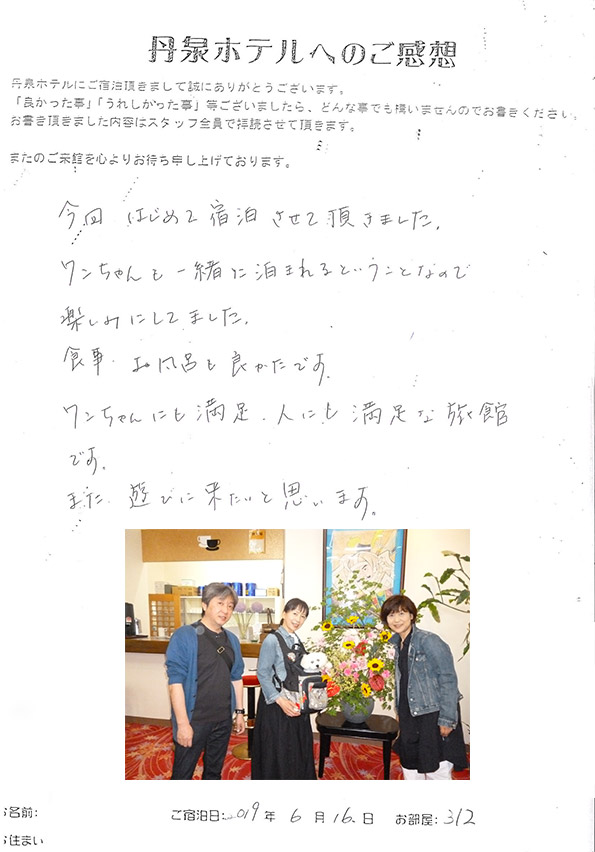 丹泉ホテルへのご感想
丹泉ホテルにご宿泊頂きまして誠にありがとうございます。
「良かった事」「うれしかった事」等ございましたら、どんな事でも構いませんのでお書きください。
お書き頂きました内容はスタッフ全員で拝読させて頂きます。
またのご来館を心よりお待ち申し上げております。
今回 はじめて宿泊させて頂きました。
ワンちゃんも一緒に泊まれるということなので
楽しみにしてました。
食事、お風呂も良かたです。
ワンちゃんにも満足、人にも満足な旅館
です。
また、遊びに来たいと思います。
お名前:
ご宿泊日:2019年 6月 16日 お部屋: 312
お住まい